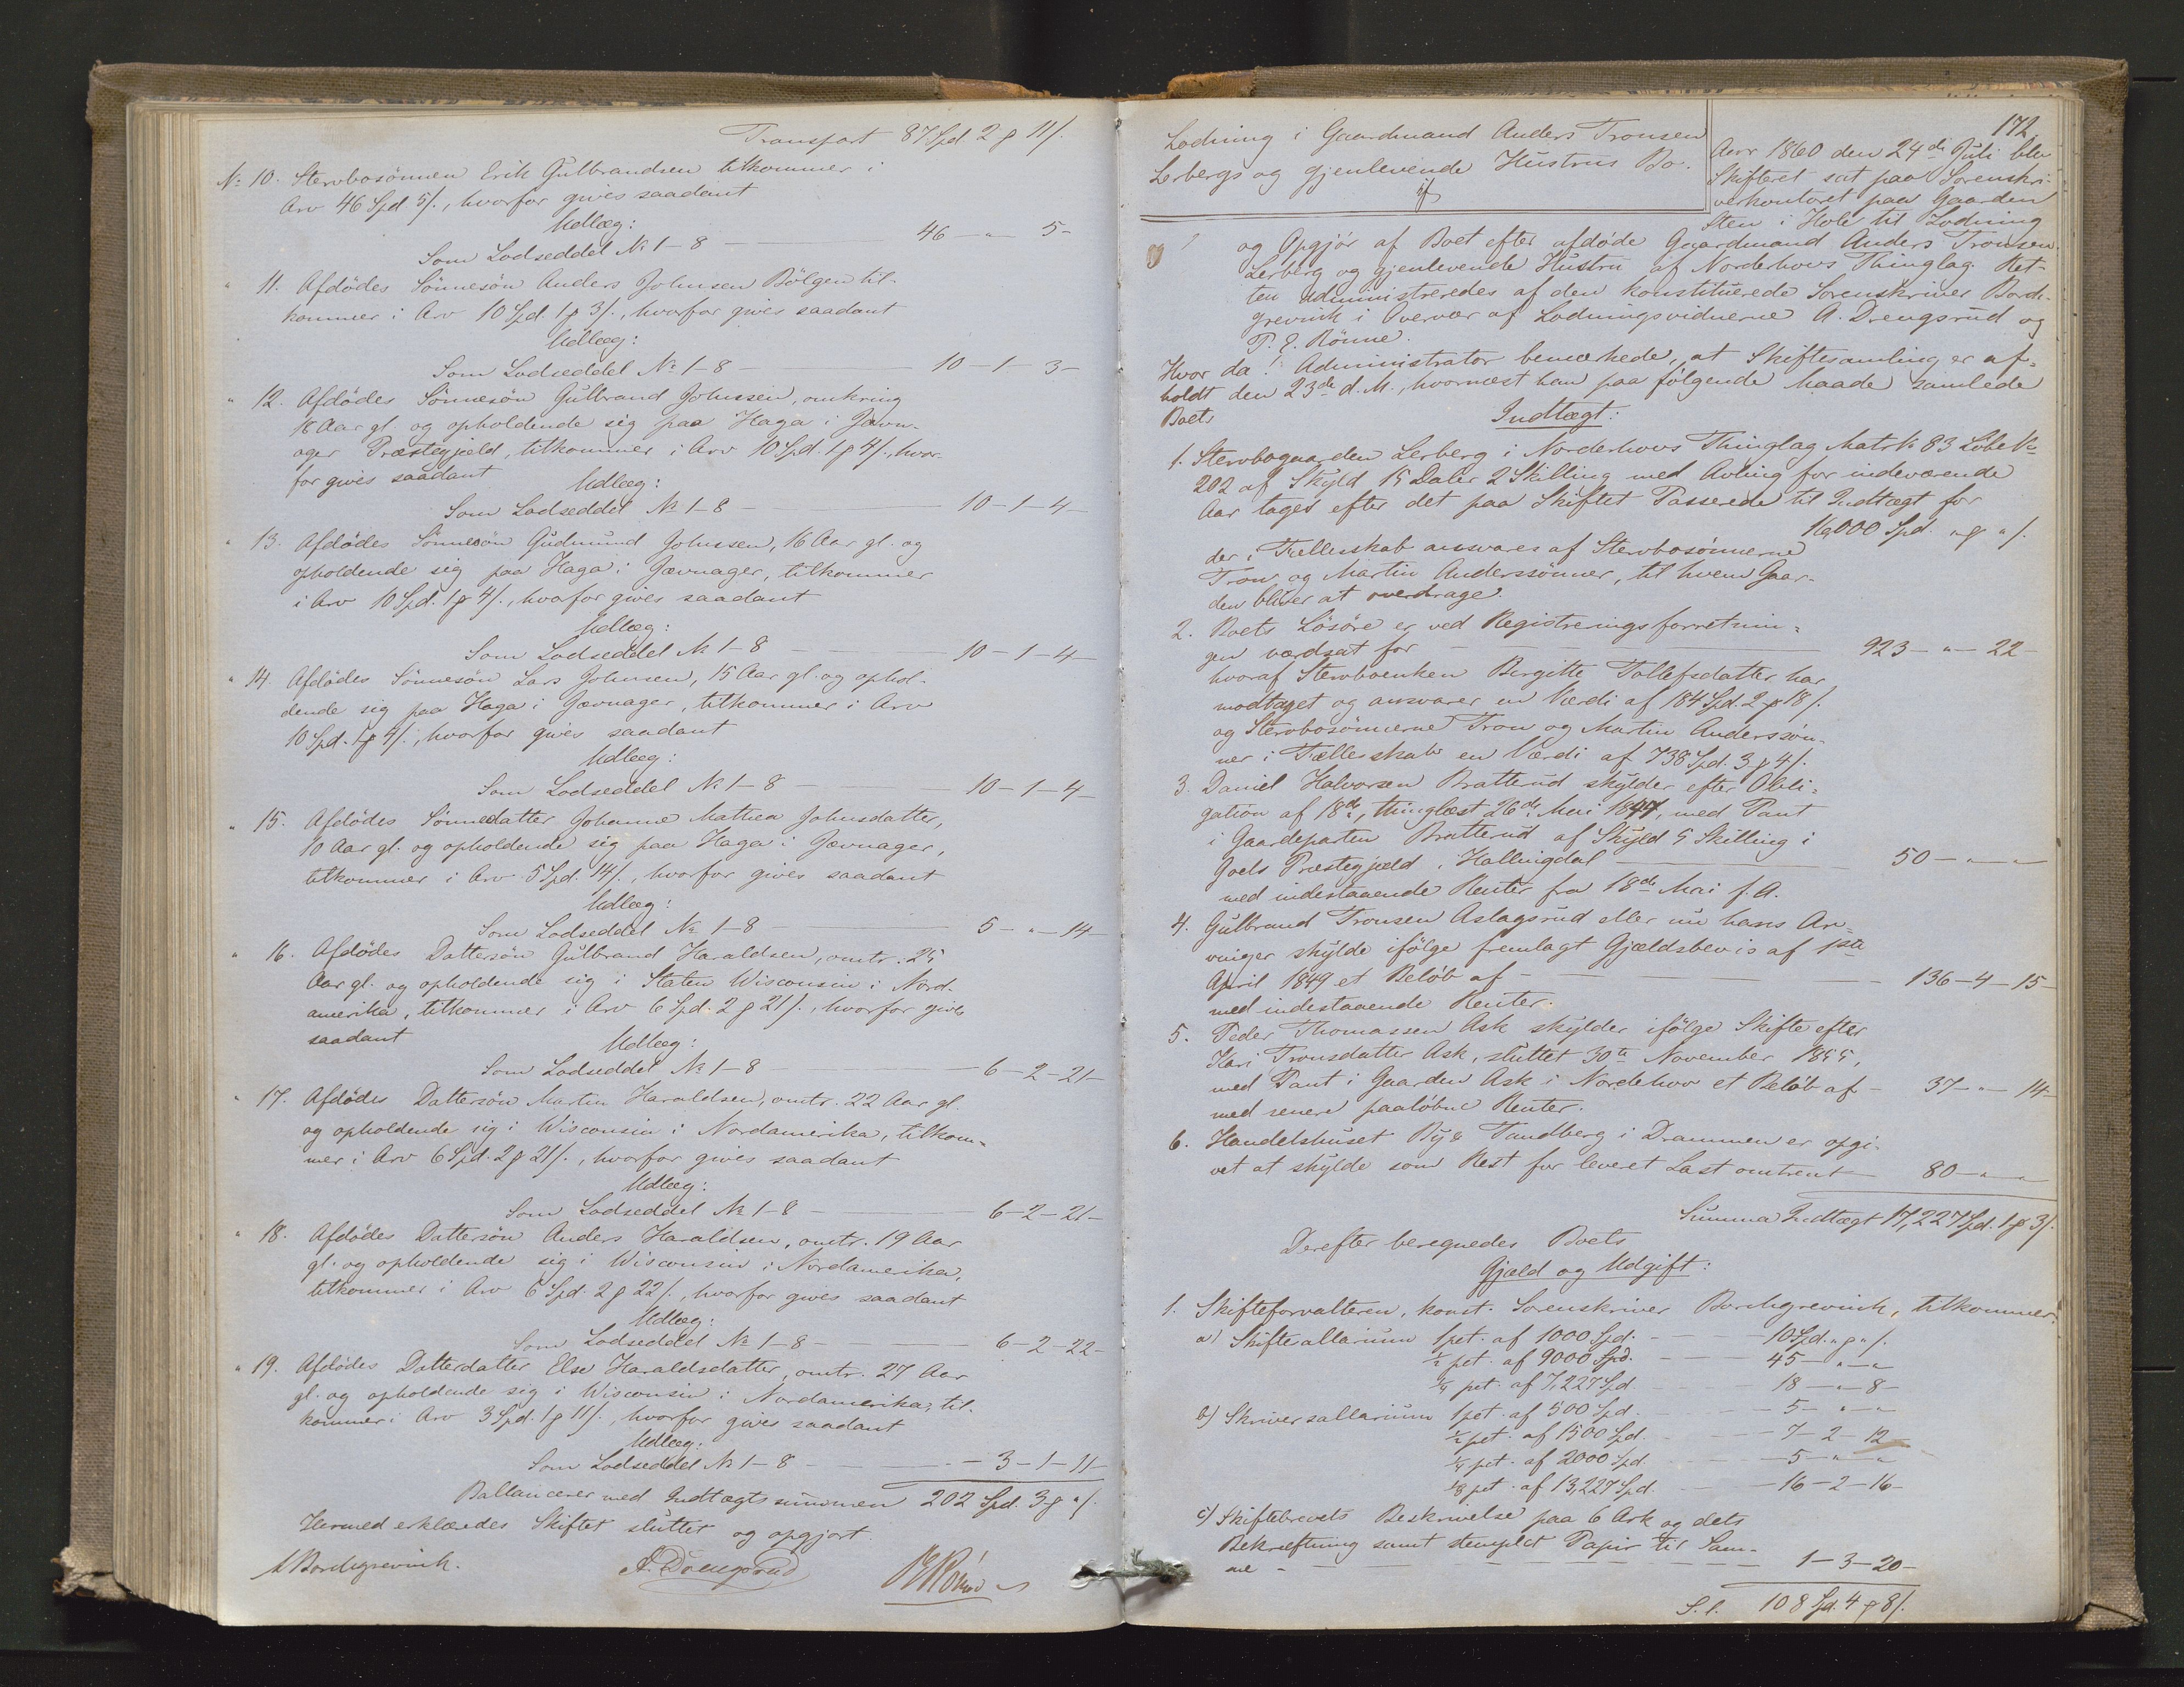 Transport 87 Spd 2 ƒ 11/.
№ 10. Stervbosönnen Erik Gulbrandsen tilkommer i
Arv 46 Spd 5/., hvorfor gives saadant
Udlæg:
Som Lodseddel № 1-8 — 46 — " — 5 -
" 11. Afdödes Sönnesön Anders Johnsen Bölgen til-
kommer i Arv 10 Spd. 1 ƒ 3/., hvorfor gives saadant
Udlæg:
Som Lodseddel № 1-8 — 10 — 1 — 3 -
" 12. Afdödes Sönnesön Gulbrand Johnsen, omkring
18 Aar gl. og opholdende sig paa Haga i Jævn-
ager Præstegjeld, tilkommer i Arv 10 Spd. 1 ƒ 4/., hvor-
for gives saadant
Udlæg:
Som Lodseddel № 1-8 — 10 - 1 - 4 -
" 13. Afdödes Sönnesön Gudmund Johnsen, 16 Aar gl. og
opholdende sig paa Haga i Jævnager, tilkommer
i Arv 10 Spd. 1 ƒ 4/., hvorfor gives saadant
Udlæg:
Som Lodseddel № 1-8 — 10 - 1 - 4 -
" 14. Afdödes Sönnesön Lars Johnsen, 15 Aar gl. og ophol-
dende sig paa Haga i Jævnager, tilkommer i Arv
10 Spd. 1 ƒ 4/., hvorfor gives saadant
Udlæg:
Som Lodseddel № 1-8 — 10 - 1 - 4 -
" 15. Afdödes Sönnedatter Johanne Mathea Johnsdatter,
10 Aar gl. og opholdende sig paa Haga i Jævnager,
tilkommer i Arv 5 Spd. 14/., hvorfor gives saadant
Udlæg:
Som Lodseddel № 1-8 — 5 - " - 14 -
" 16. Afdödes Dattersön Gulbrand Haraldsen, omtr. 25
Aar gl. og opholdende sig i Staten Wisconsin i Nord-
amerika, tilkommer i Arv 6 Spd. 2 ƒ 21/., hvorfor gives
saadant
Udlæg:
Som Lodseddel № 1-8 — 6 - 2 - 21 -
" 17. Afdödes Dattersön Martin Haraldsen, omtr. 22 Aar gl.
og opholdende sig i Wisconsin i Nordamerika, tilkom-
mer i Arv 6 Spd. 2 ƒ 21/., hvorfor gives saadant
Udlæg:
Som Lodseddel № 1-8 — 6 - 2 - 21 -
" 18. Afdödes Dattersön Anders Haraldsen, omtr. 19 Aar
gl. og opholdende sig i Wisconsin i Nordamerika,
tilkommer i Arv 6 Spd. 2 ƒ 22/., hvorfor gives saadant
Udlæg:
Som Lodseddel № 1-8 — 6 - 2 - 22 -
" 19. Afdödes Datterdatter Else Haraldsdatter, omtr. 27 Aar
gl. og opholdende sig i Wisconsin i Nordamerika, til-
kommer i Arv 3 Spd. 1 ƒ 11/., hvorfor gives saadant
Udlæg:
Som Lodseddel № 1-8 — 3 - 1 - 11 -
Ballancerer med Indtægtssummen 202 Spd. 3 ƒ "/.
Hermed erklæredes Skiftet sluttet og opgjort.
Borchgrevink. A. Drengsrud
172.
Lodning i Gaardmand Anders Tronsen
Lerbergs og gjenlevende Hustrus Bo.
Aar 1860 den 24de Juli blev
Skifteret sat paa Sorenskri-
verkontoret paa Gaarden
Sten i Hole til Lodning
og Opgjör af Boet efter afdöde Gaardmand Anders Tronsen
Lerberg og gjenlevende Hustru af Norderhovs Thinglag. Ret-
ten administreredes af den konstituerede Sorenskriver Borch-
grevink i Overvær af Lodningsvidnerne A. Drengsrud og
P. E. Rönne.
Hvor da: Administrator bemærkede, at Skiftesamling er af-
holdt den 23de d. M., hvornæst han paa fölgende Maade samlede
Boets
Indtægt:
1. Stervbogaarden Lerberg i Norderhovs Thinglag Mat. № 83 Löbe №
202 af Skyld 15 Daler 2 Skilling med Avling for indeværende
Aar tages efter det paa Skiftet Passerede til Indtægt for
16,000 Spd. " ƒ "/.
der i Fællesskab ansvares af Stervbosönnerne
Tron og Martin Anderssönner, til hvem Gaar-
den bliver at overdrage.
2. Boets Lösöre er ved Registreringsforretnin-
gen værdsat for — 923 - " - 22 -
hvoraf Stervboenken Birgitte Tollefsdatter har
modtaget og ansvarer en Værdi af 184 Spd. 2 ƒ 18/.
og Stervbosönnerne Tron og Martin Anderssön-
ner i Fællesskab en Værdi af 738 Spd. 3 ƒ 4/.
3. Daniel Halvorsen Bratterud skylder efter Obli-
gation af 18de, thinglæst 26de Mai 1847, med Pant
i Gaardeparten Bratterud af Skyld 5 Skilling i
Goels Præstegjeld i Hallingdal — 50 - " - "
med indestaaende Renter fra 18de Mai f. A.
4. Gulbrand Tronsen Aslagsrud eller nu hans Ar-
vinger skylde ifölge fremlagt Gjældsbevis af 1ste
April 1849 et Belöb af — 136 - 4 - 15 -
med indestaaende Renter.
5. Peder Thomassen Ask skylder ifölge Skifte efter
Kari Tronsdatter Ask, sluttet 30te November 1855,
med Pant i Gaarden Ask i Norderhov et Belöb af — 37 - " - 14 -
med senere paalöbne Renter.
6. Handelshuset By & Tandberg i Drammen er opgi-
vet at skylde som Rest for leveret Last omtrent — 80 - " - "
Summa Indtægt 17,227 Spd. 1 ƒ 3/.
Derefter beregnedes Boets
Gjæld og Udgift:
1. Skifteforvalteren, konst. Sorenskriver Borchgrevink, tilkommer:
a) Skiftesallarium 1 pct. af 1000 Spd. — 10 Spd. " ƒ "/.
½ pct. af 9000 Spd. — 45 - " - "
¼ pct. af 7,227 Spd. — 18 - " - 8 -
b) Skriversallarium 1 pct. af 500 Spd. — 5 - " - "
½ pct. af 1500 Spd. — 7 - 2 - 12
¼ pct. af 2000 Spd. — 5 - " - "
⅛ pct. af 13,227 Spd. — 16 - 2 - 16 -
c) Skiftebrevets Beskrivelse paa 6 Ark og dets
Bekræftning samt stemplet Papir til Sam-
me — 1 - 3 - 20 -
S. l. 108 Spd. 4 ƒ 8/.